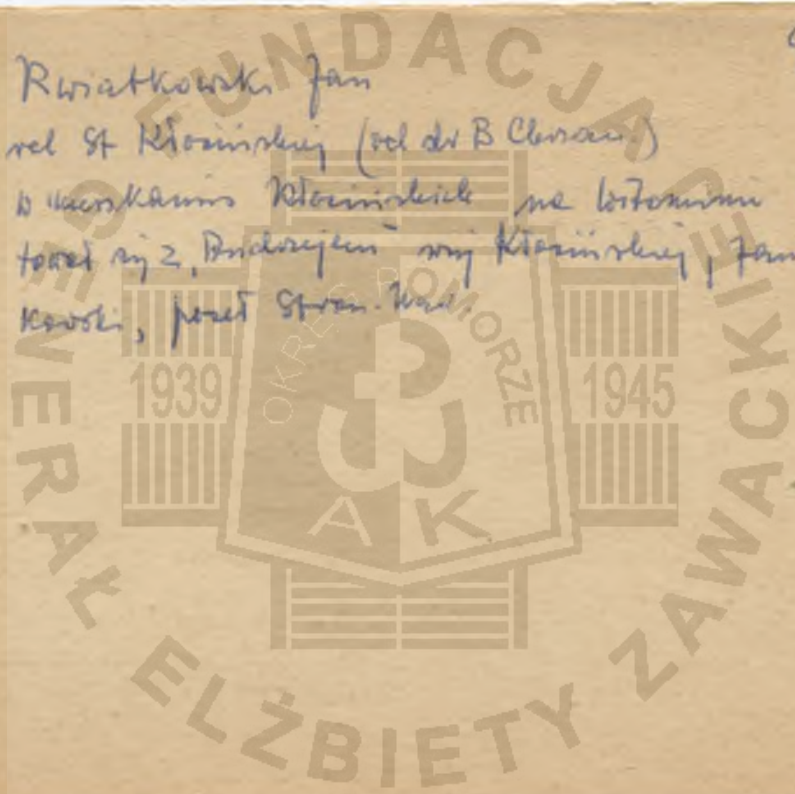 Kwiatkowski Jan
rel St Kłosińskiej (rel dr B Chrzan.)
w mieszkaniu Kłosińskich na Witominie
tował się z, Andrzejem wuj Kłosińskiej, Jan
kowski, poseł Stron. Nar.
FUNDACJA
GENERAŁ ELŻBIETY ZAWACKIEJ
OKRĘG POMORZE
1939
1945
A K